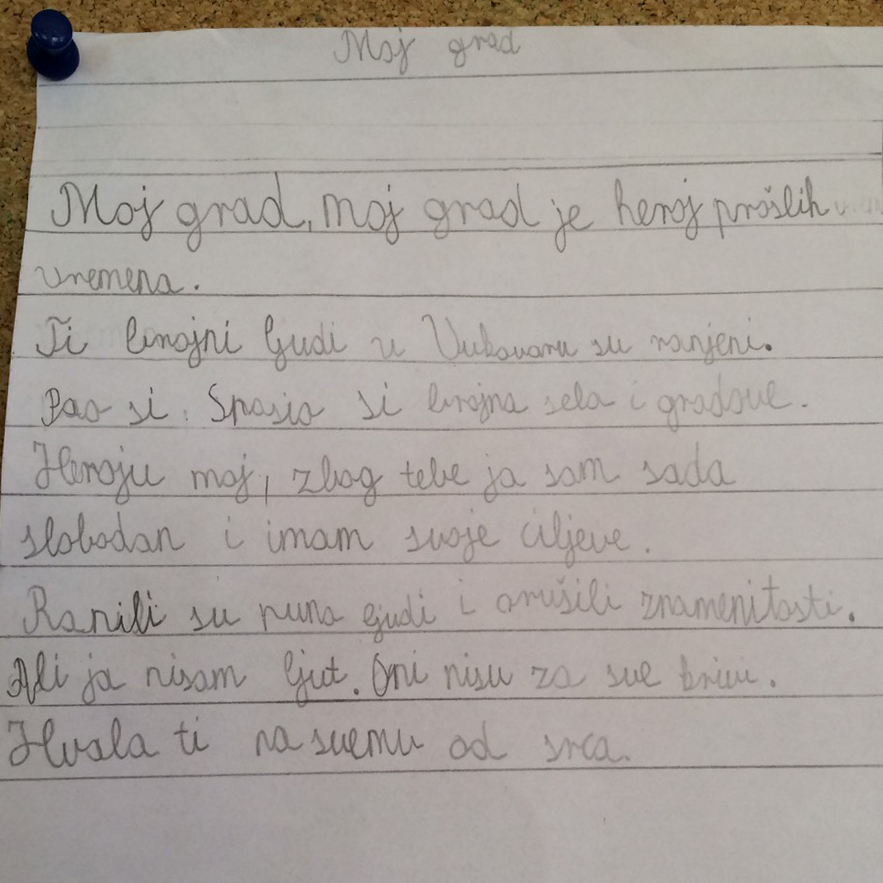 Moj grad
Moj grad, moj grad je heroj prošlih
vremena.
Ti brojni ljudi u Vukovaru su ranjeni.
Pao si. Spasio si brojna sela i gradove.
Heroju moj, zbog tebe ja sam sada
slobodan i imam svoje ciljeve.
Ranili su puno ljudi i srušili znamenitosti.
Ali ja nisam ljut. Oni nisu za sve krivi.
Hvala ti na svemu od srca.